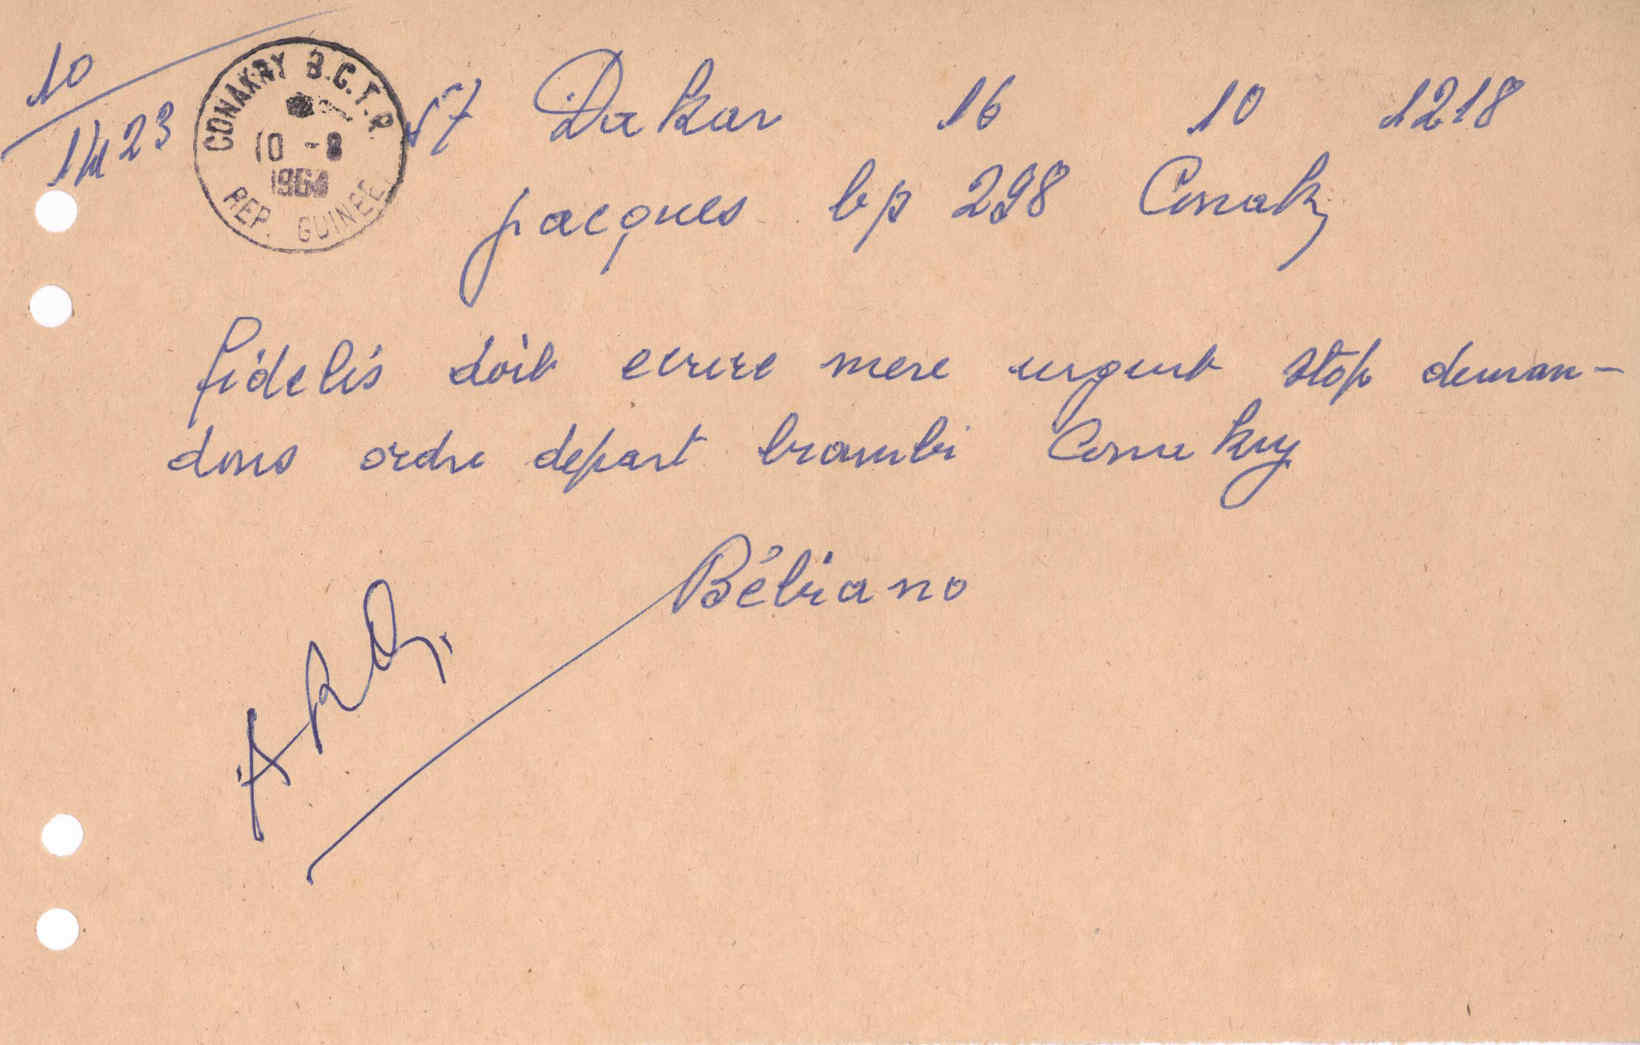 10
14h23
CONAKRY B.C.T.R.
10 -8
1964
REP. GUINEE
57 Dakar 16 10 1218
jacques bp 298 Conaky
fidelis doit ecrire mere urgent stop deman-
dons ordre depart brambi Conakry
Bébiano